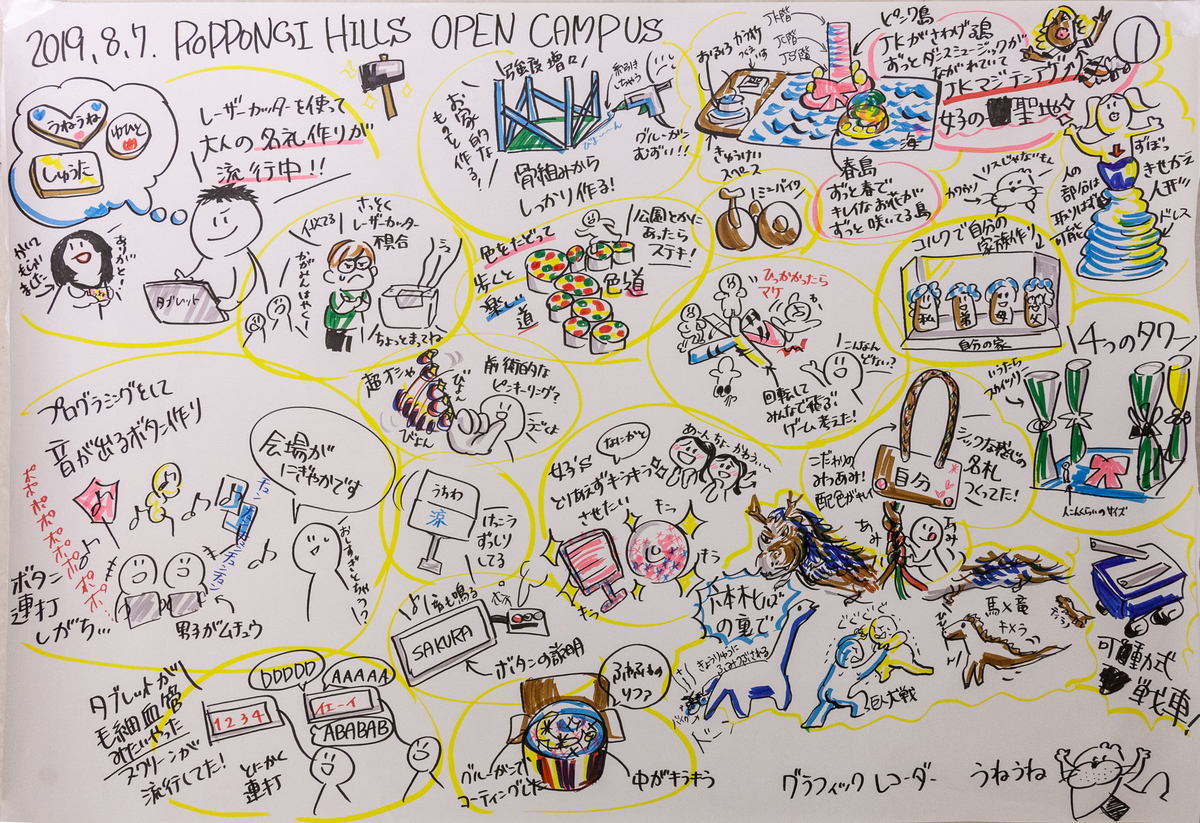 2019.8.7. ROPPONGI HILLS OPEN CAMPUS
うねうね
ゆいと
しゅうた
レーザーカッターを使って
大人の名札作りが
流行中!!
タブレット
ありがと!
さっそく
レーザーカッター
似てる
ちょっとまってね
強度増々
お家的な
ものを作る!
グルーガン
むずい!!
骨組みから
しっかり作る!
JK階
JC階
JS階
きゅうけい
スペース
海
春島
ずっと春で
キレイなお花が
ずっと咲いてる島
ピンク島
JKがさわげる島
ずっとダンスミュージックが
ながれていて
JKマジテンアゲ↗
女子の聖地
ミニバイク
リスじゃないもん
カワウソ
ずぼっ
きせかえ
人形
ドレス
人の
部分は
取りはずし
可能
色をたどって
歩くと
楽しい
道
公園とかに
あったら
ステキ!
色道
コルクで自分の
家族作り
私
弟
母
父
自分の家
ひっかかったら
マケ
こんなん
どない?
回転して
みんなで遊ぶ
ゲーム考えた!
超オシャ
びよん
びよん
前衛的な
ピンキーリング?
4つのタワー
いうたら
スカイツリー
プログラミングをして
音が出るボタン作り
ポポポポポポポポ
会場が
にぎやかです
ボタン
連打
しがち…
男子がムチュウ
うちわ
涼
けっこう
ずっしり
してる
女子's
なにかと
とりあえずキラキラ
させたい
あーんちょーかわうぃー
こだわりの
みつあみ!
配色がキレイ
自分
シックな感じの
名札
つくってた!
あみ
あみ
音も鳴るよ!
SAKURA
ボタンの説明
六本木ヒルズ
の裏で
きょうりゅうに
ふみつぶされる
2巨大戦
馬×竜
キメラ
可動式
戦車
タブレットが
毛細血管
みたいやった
スクリーンが
流行してた!
DDDDD
AAAAA
1234
イエーイ
ABABAB
とにかく
連打
グルーガンで
コーティングした
中がキラキラ
グラフィックレコーダー うねうね